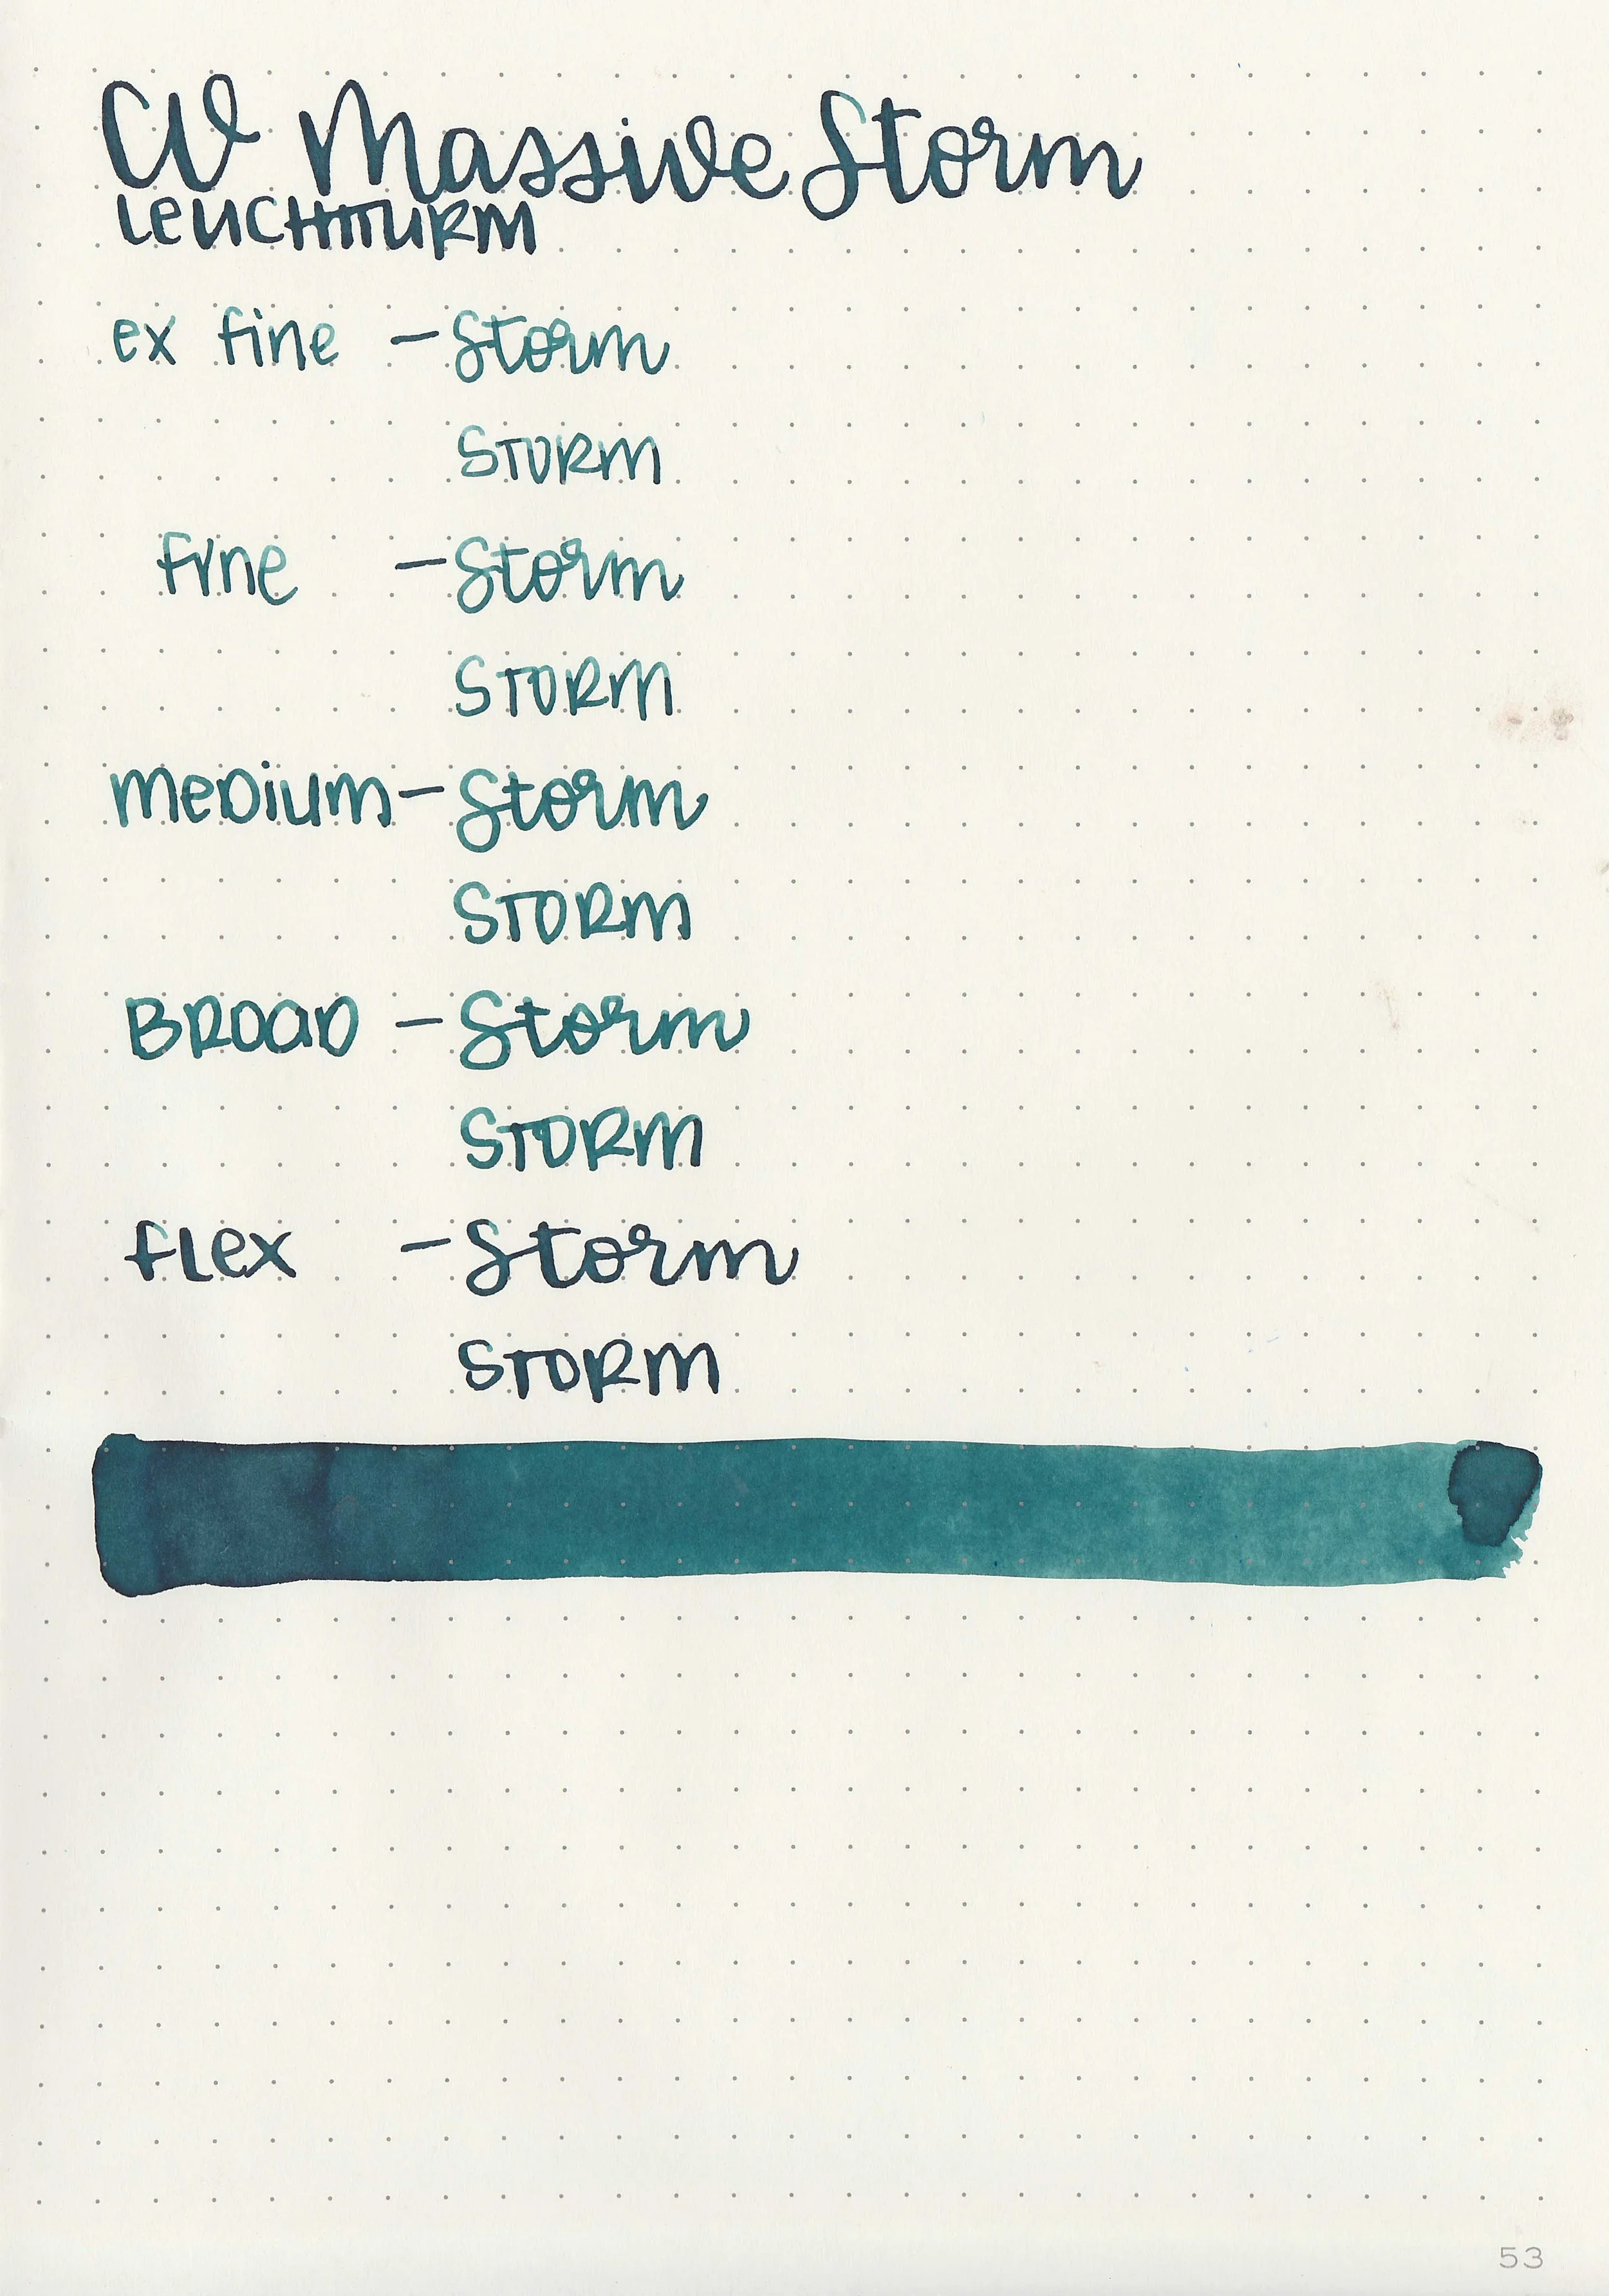 CV Massive Storm
LEUCHTTURM
ex fine - Storm
STORM
fine - Storm
STORM
MEDIUM - Storm
STORM
BROAD - Storm
STORM
flex - Storm
STORM
53